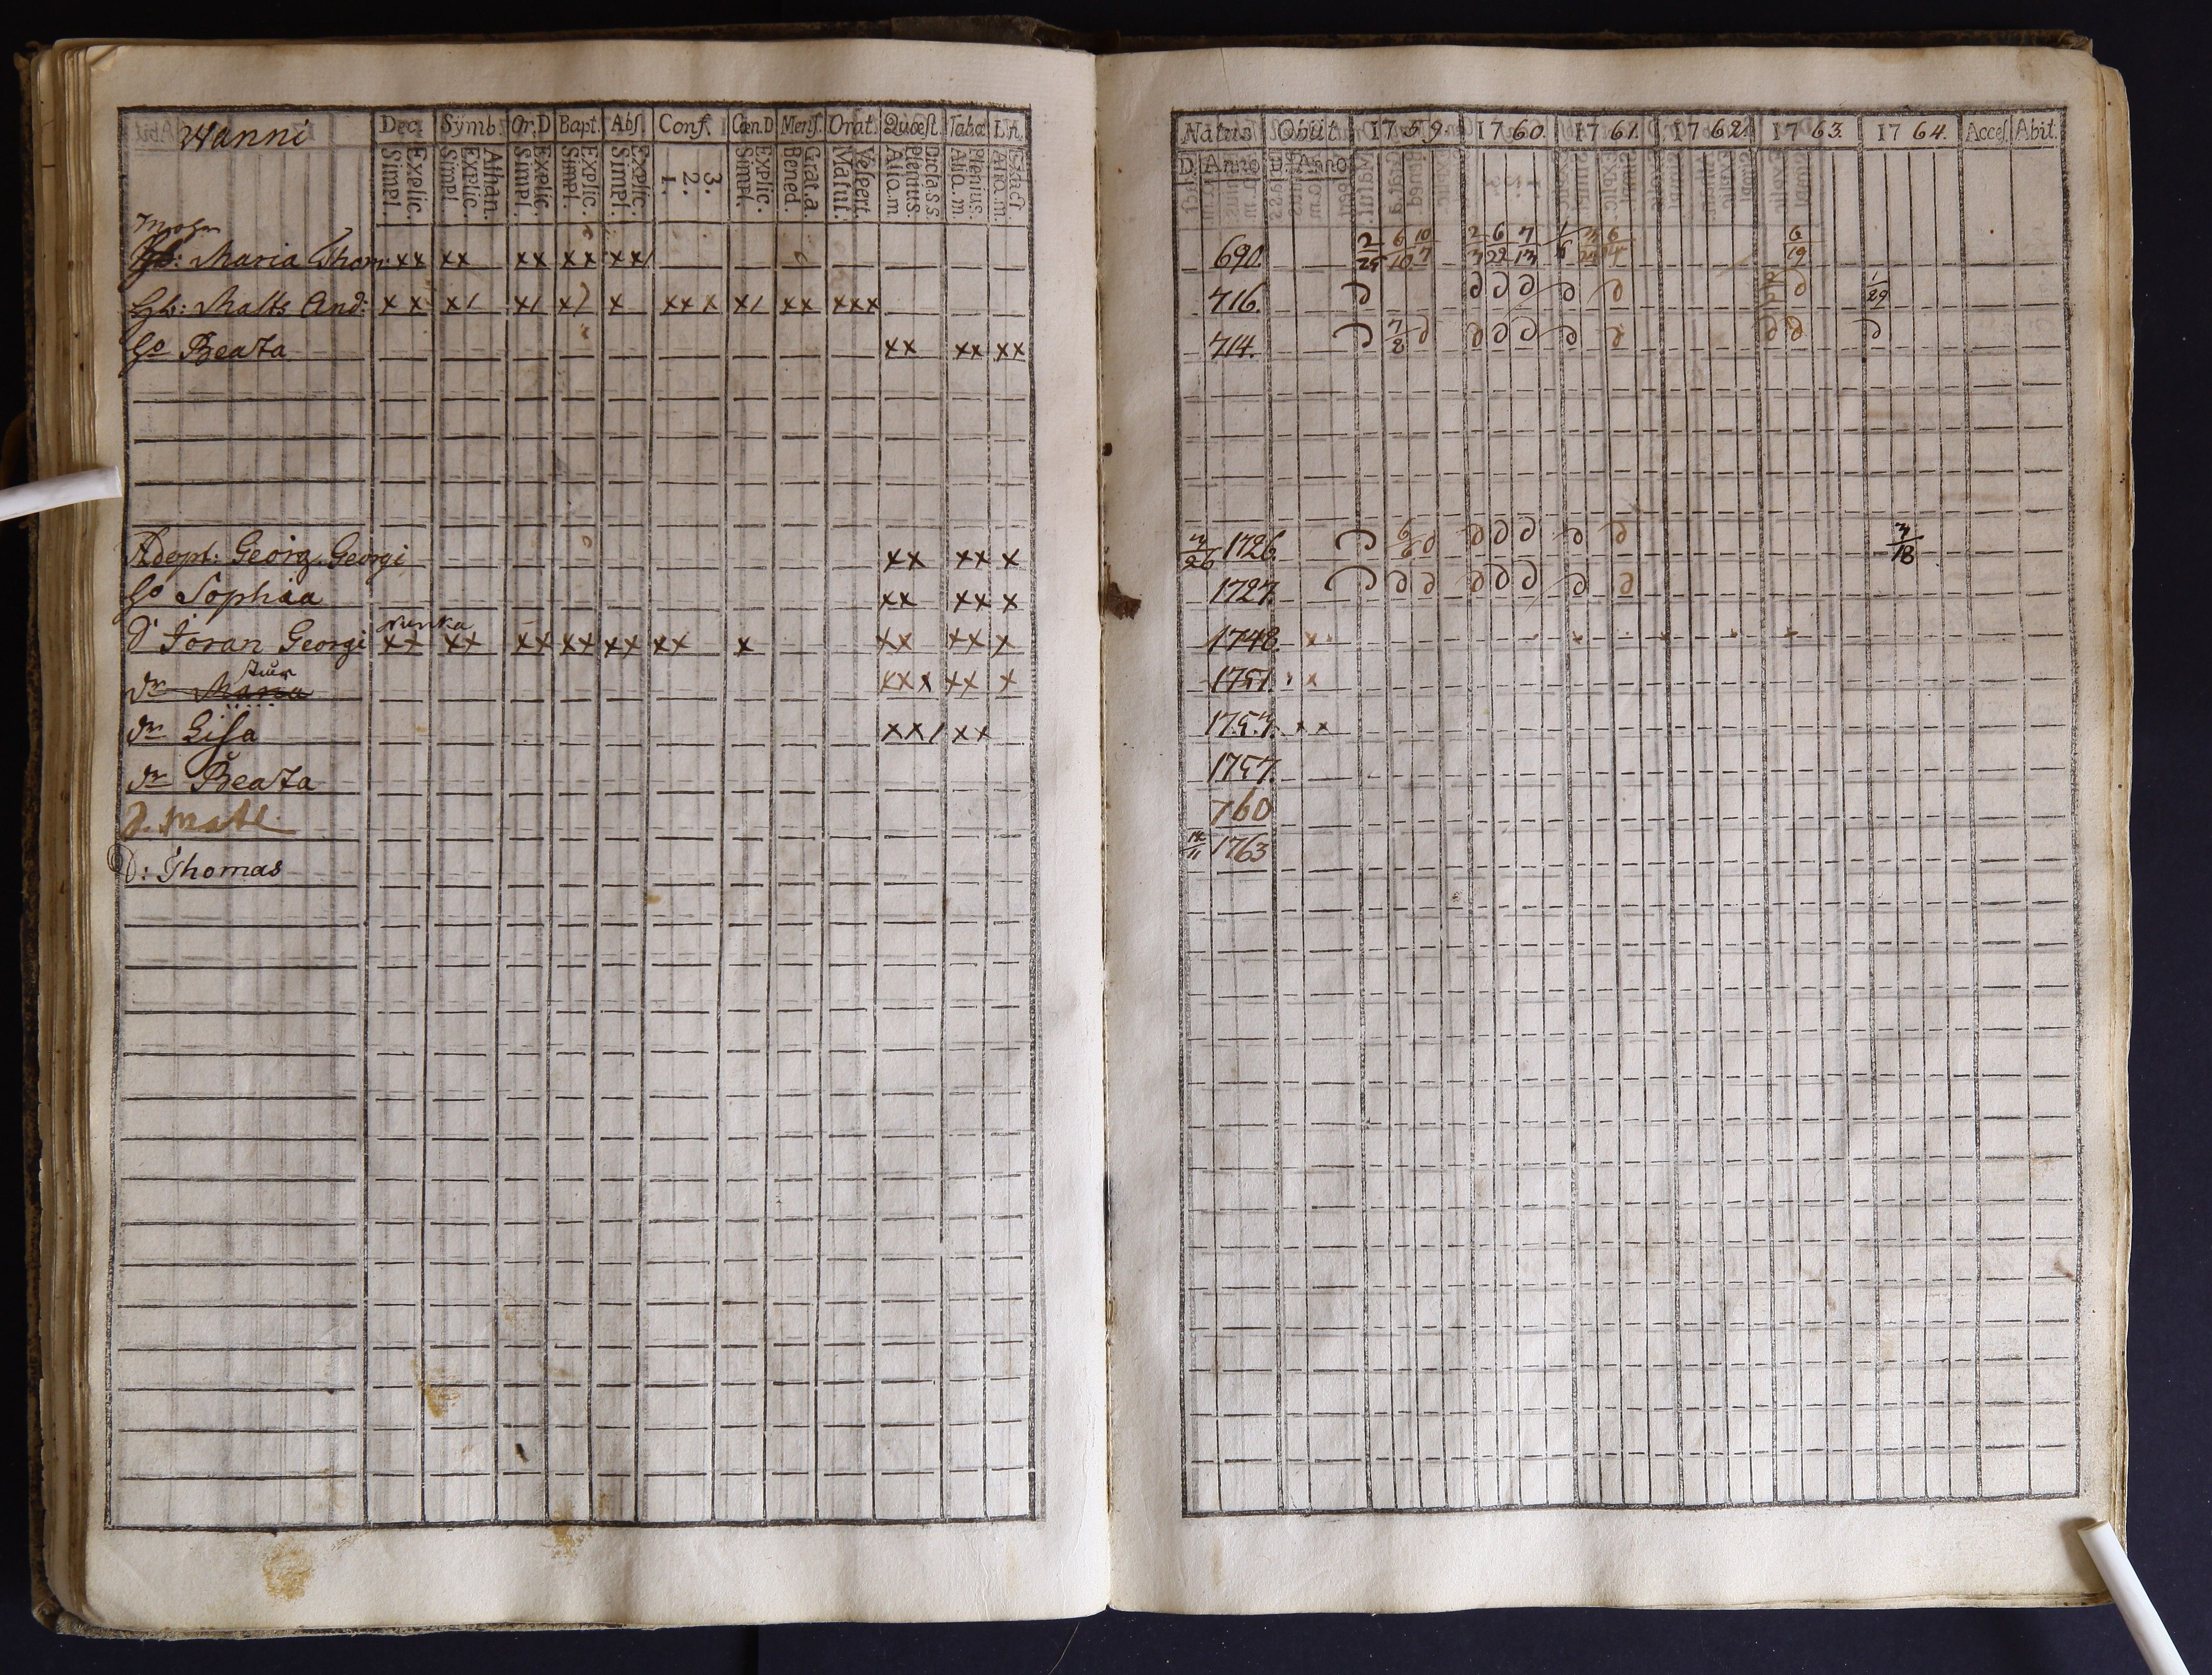 Wanni Dec. Symb. Or.D Bapt. Abſ. Conf. Cœn.D Menſ. Orat. Quæſt. Tabæ L.n.
Simpl. Explic. Simpl. Explic. Athan. Simpl. Explic. Simpl. Explic. Simpl. Explic. 1. 2. 3. Simpl. Explic. Bened. Grat.a. Matut. Veſpert. Aliq.m. Plenius. Dicta.s.s. Aliq.m. Plenius. Aliq.m. Exact.
Maria Thom: xx xx xx xx xx/
Hb: Matts And: x x x/ x/ x/ x xx x x/ xx xxx
Ho Beata xx xx xx
Adopt: Georg Georgi xx xx x
Ho Sophia xx xx x
runka
D Joran Georgi xx xx xx xx xx xx x xx xx x
dr Maria xxx xx x
dr Lisa xx/ xx
dr Beata
D. Matt
D: Thomas
Natus Obiit 1759. 1760. 1761. 1762. 1763. 1764. Acceſ Abit.
D. Anno D. Anno
690. 2/25 6/10 10/7 2/3 6/22 7/13 6/19
716. 1/29
714. 7/8
1726. 7/18
1727.
1748. x
1751. x
1757. x x
1757.
760
1763